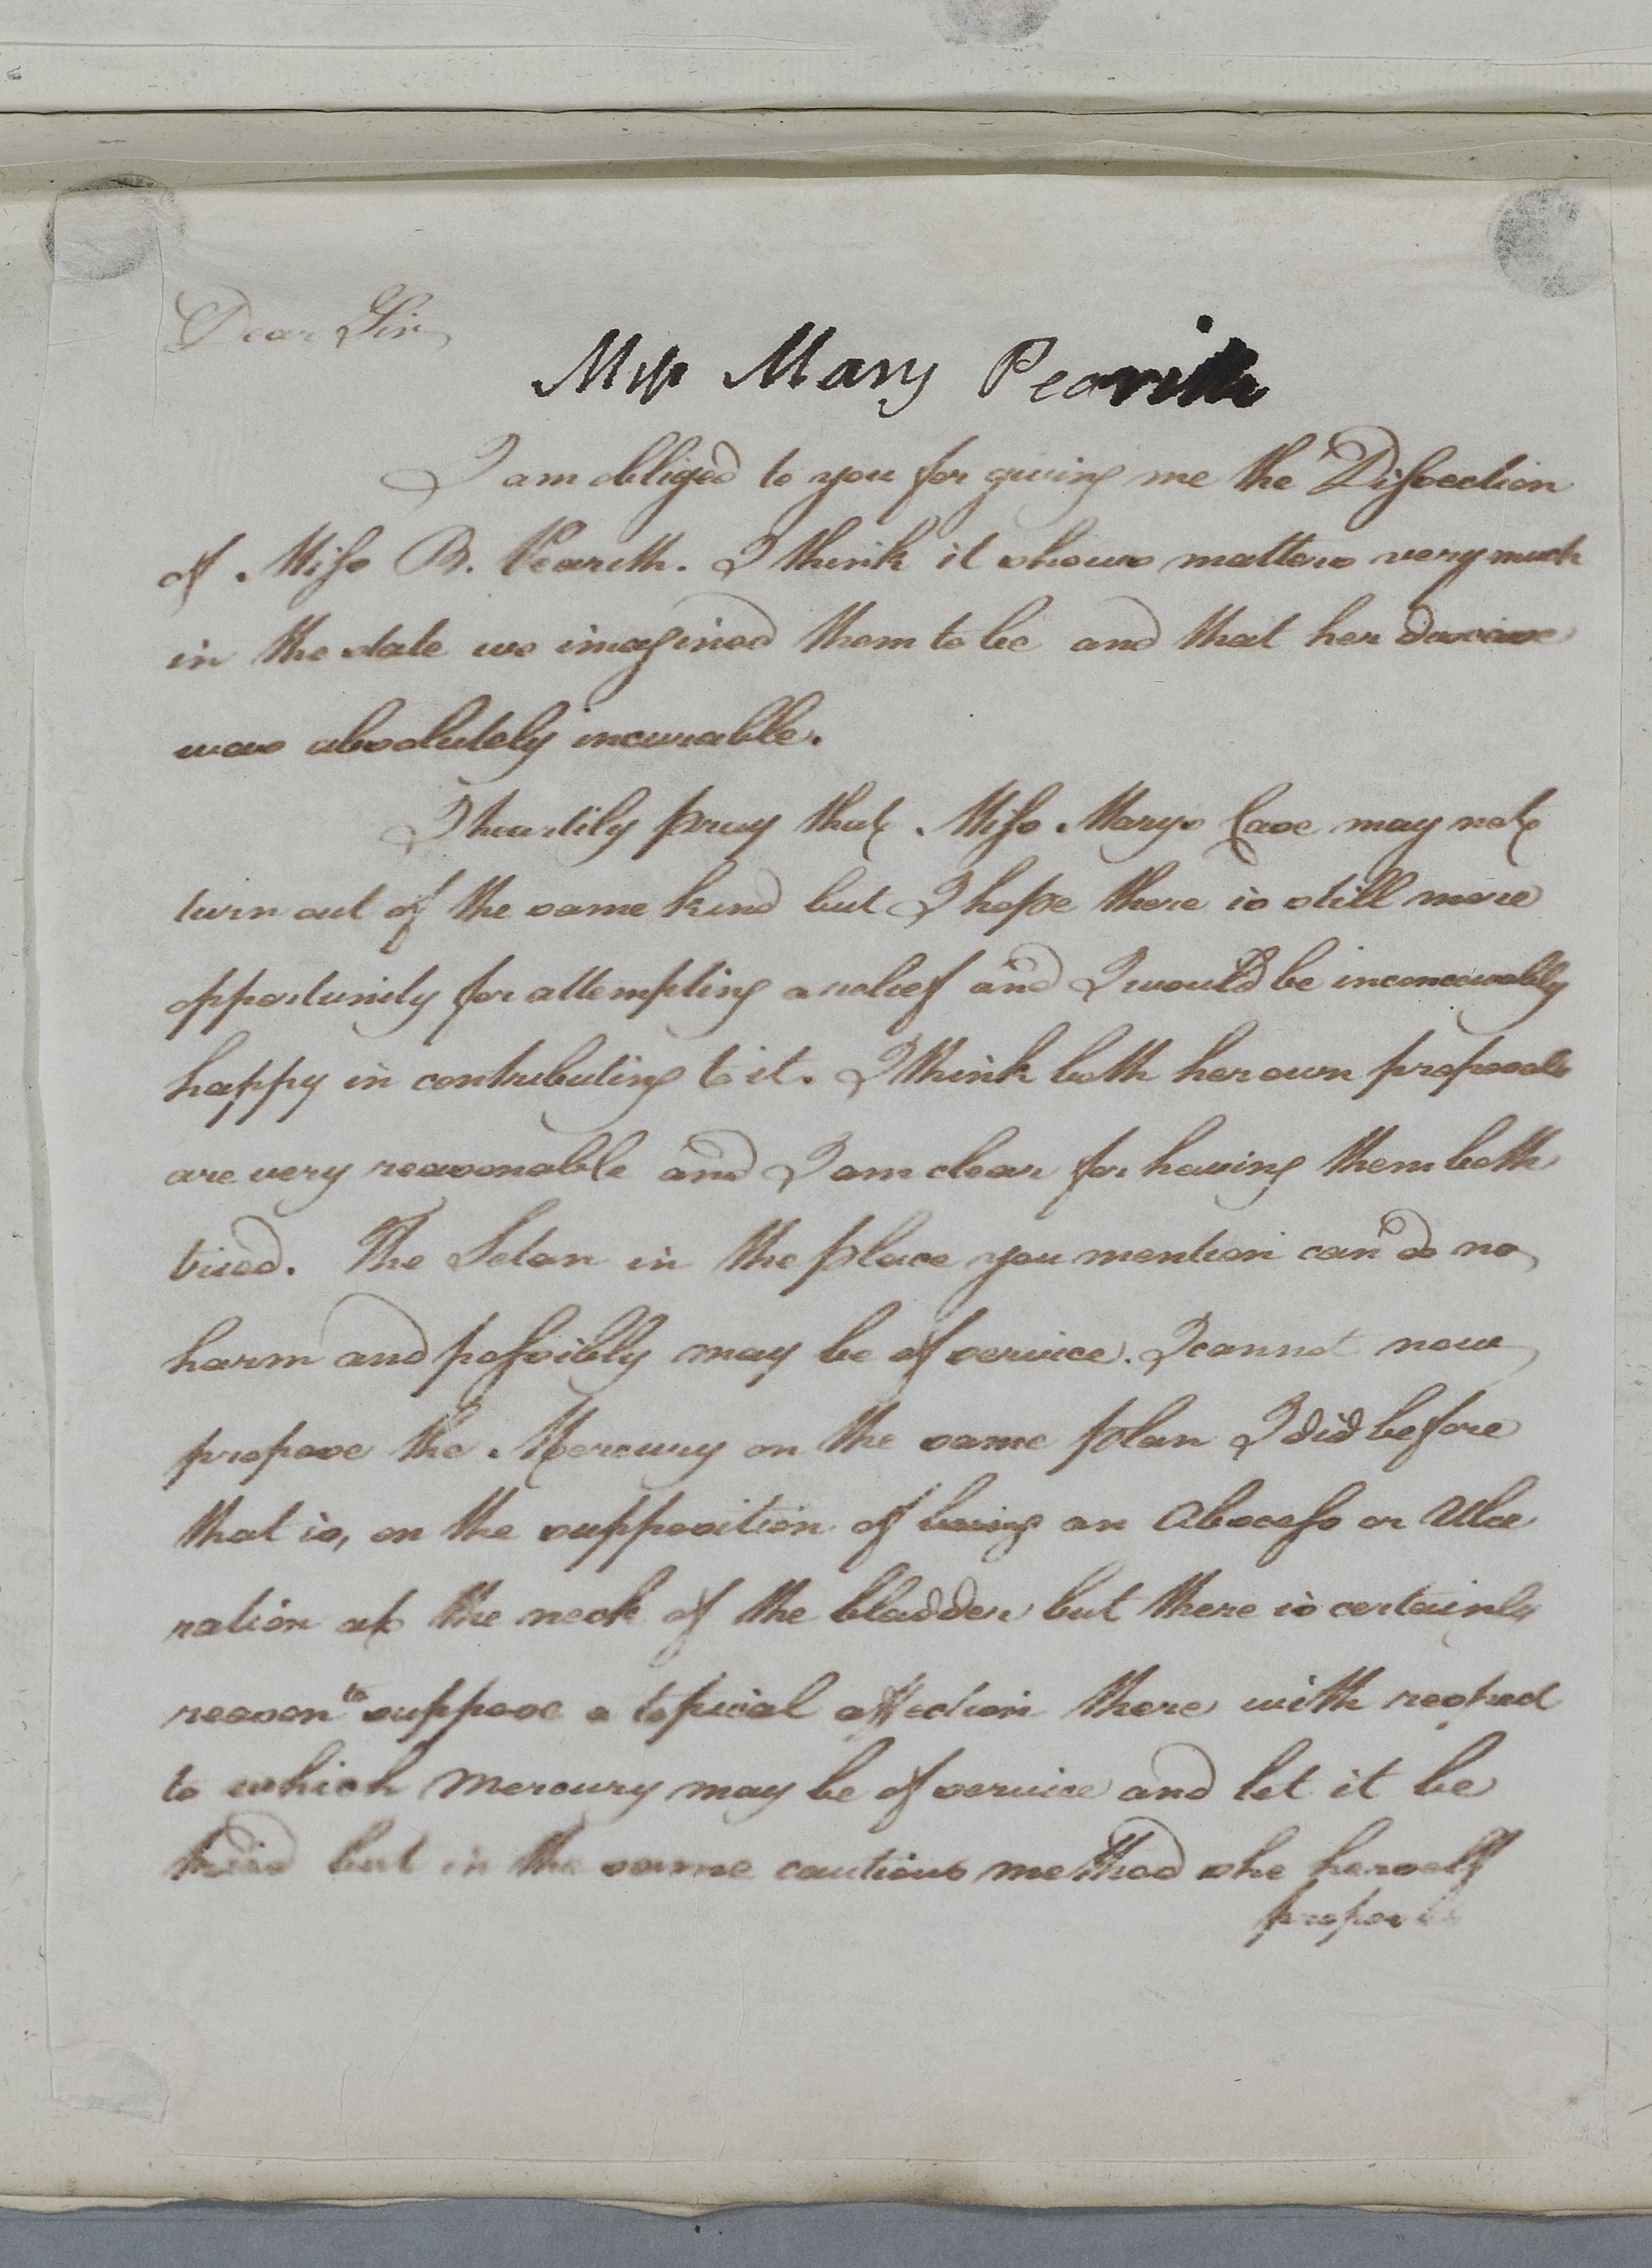 Dear Sir,
Miss Mary Pearith
I am obliged to you for giving me the Dissection
of Miss B. Pearith. I think it shows matters very much
in the state we imagined them to be and that her disease
was absolutely incurable.
I heartily pray that Miss Marys Case may not
turn out of the same kind but I hope there is still more
opportunity for attempting a relief and I would be inconceivably
happy in contributing to it. I think both her own proposals
are very reasonable and I am clear for having them both
tried. The Seton in the place you mention can do no
harm and possibly may be of service. I cannot now
propose the Mercury on the same plan I did before
that is, on the supposition of being an Abscess or Ulce
ration at the neck of the bladder but there is certainly
reason to suppose a topical affection there with respect
to which Mercury may be of service and let it be
tried but in the same cautious method she herself
proposes